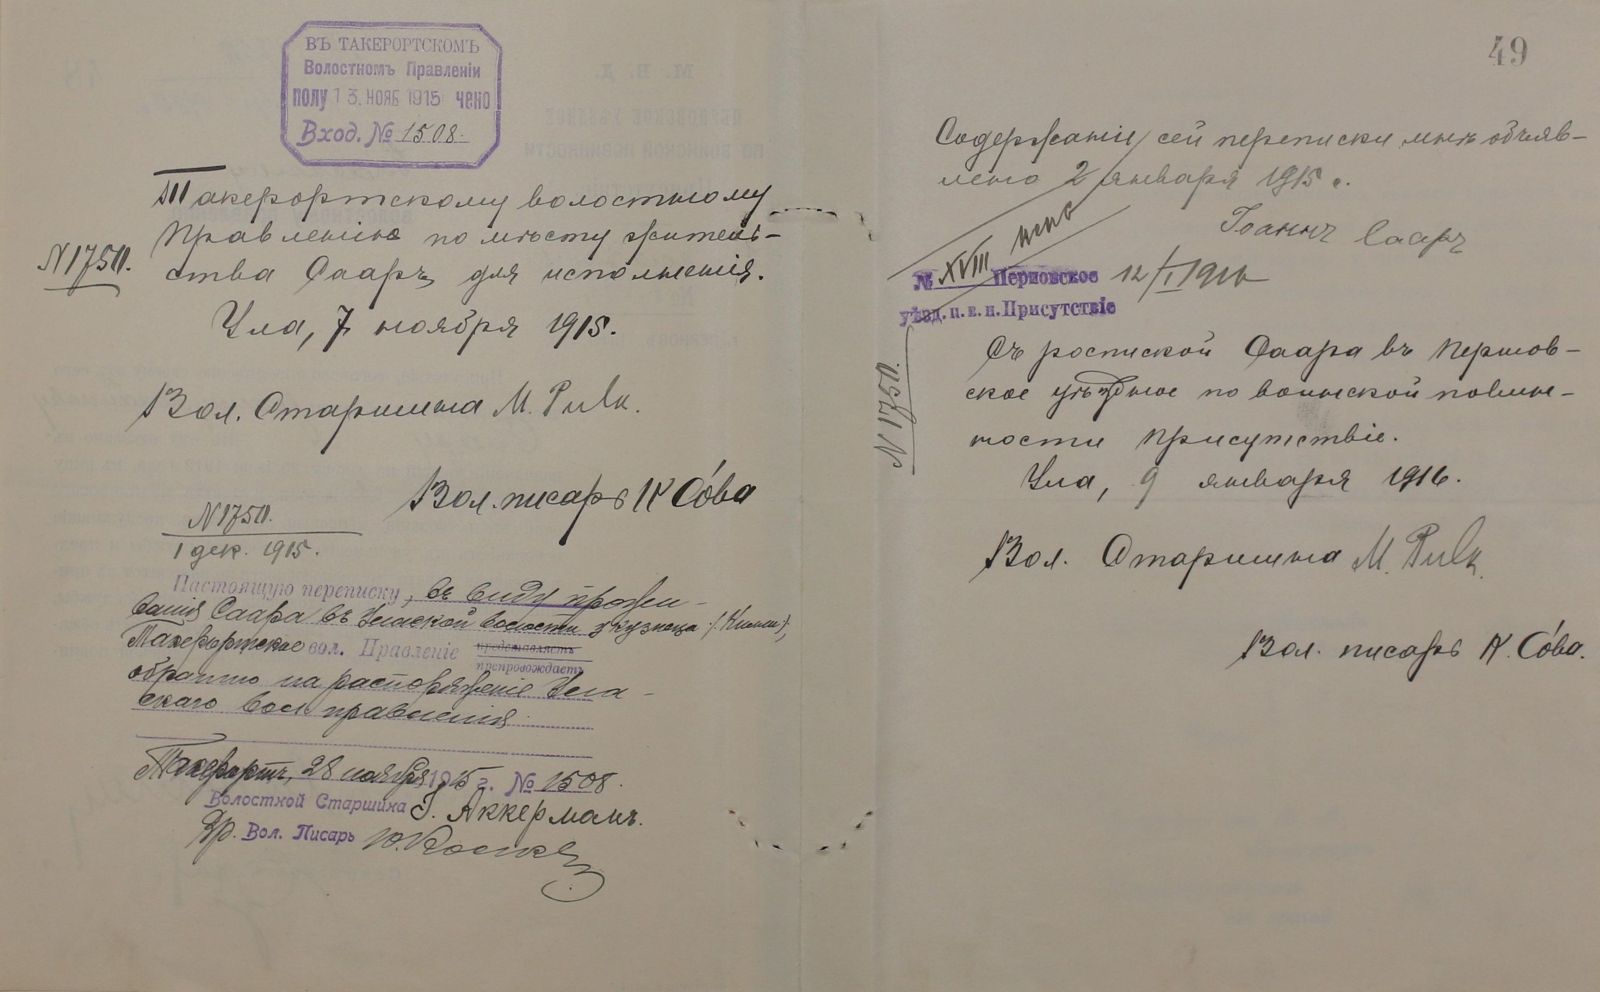 ВЪ ТАКЕРОРТСКОМЪ
Волостномъ Правленіи
полу 13. НОЯБ 1915 чено
Вход. № 1508.
Такерортскому волостному
Правленію по мѣсту житель-
N 1750.
ства Сааръ, для исполненія.
Ула, 7 ноября 1915.
Вол. Старшина М.
Вол. писарь К Со́ва
N 1750.
1 дек. 1915.
Настоящую переписку, въ виду прожи-
ванія Саара въ Улаской волости у кузнеца
Такерортское вол. Правленіе представляетъ
препровождаетъ
обратно на распоряженіе Ула-
скаго вол. правленія
Такерортъ, 28 ноября 1915 г. № 1508.
Волостной Старшина Г. Аккерманъ.
Вр. Вол. Писарь
49
Содержаніе сей переписки мнѣ объяв-
лено 2 января 1915 г.
Іоаннъ Сааръ
№ XVIII Перновское 12/I 1916
уѣзд. п. в. п. Присутствіе
N 1750.
Съ роспиской Саара въ Пернов-
ское уѣздное по воинской повин-
ности Присутствіе.
Ула, 9 января 1916.
Вол. Старшина М.
Вол. писарь К. Со́ва.